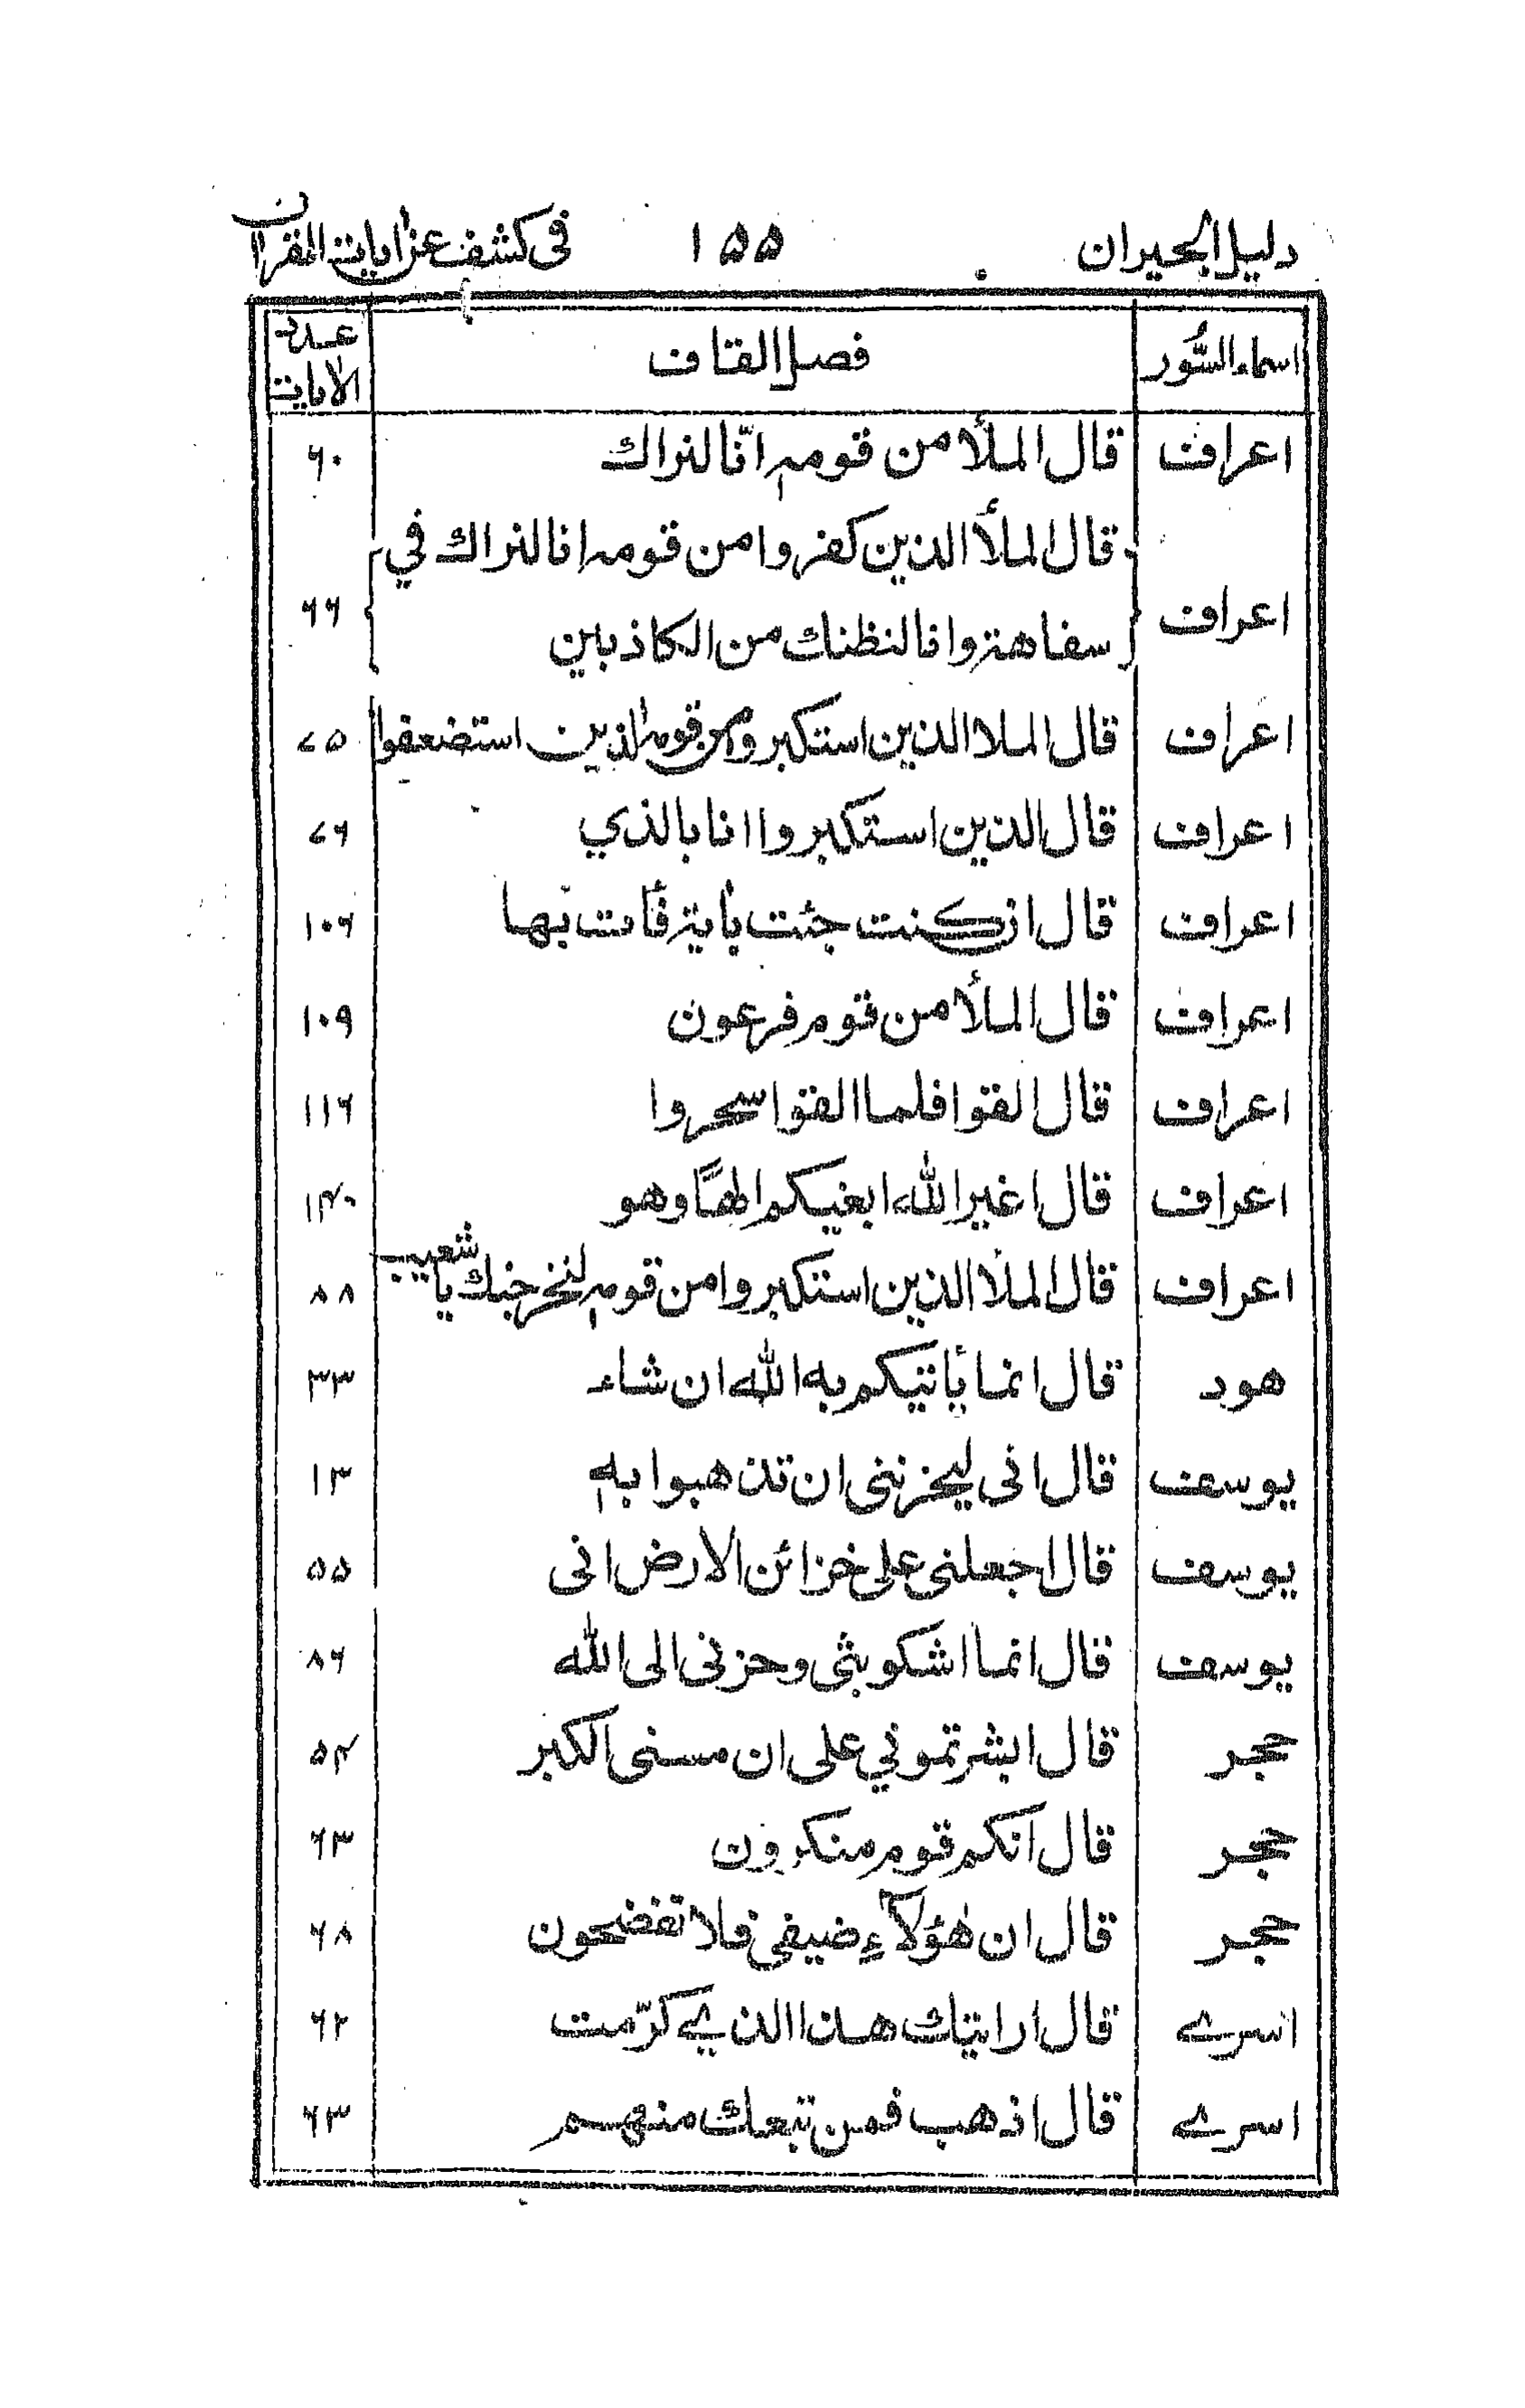 دليل الحيران ١٥٥ فى كشف عن ايات القران
اسماء السُّور فصل القاف عدد الايات
اعراف قال الملأ من قومهٖ انّا لنراك ٦٠
اعراف قال الملأ الذين كفروا من قومه انا لنراك في
سفاهة وانا لنظنك من الكاذبين ٦٦
اعراف قال الملا الذين استكبروا من قومه للذين استضعفوا ٧٥
اعراف قال الذين استكبروا انا بالذي ٧٦
اعراف قال ان كنت جئت بأية فأت بها ١٠٦
اعراف قال الملأ من قوم فرعون ١٠٩
اعراف قال القوا فلما القوا سحروا ١١٦
اعراف قال اغير الله ابغيكم الهًا وهو ١٤٠
اعراف قال الملأ الذين استكبروا من قومهٖ لنخرجنك يا شعيب ٨٨
هود قال انما يأتيكم به الله ان شاء ٣٣
يوسف قال انى ليحزننى ان تذهبوا بهٖ ١٣
يوسف قال اجعلنى على خزائن الارض انى ٥٥
يوسف قال انما اشكو بثى وحزنى الى الله ٨٦
حجر قال ابشرتموني على ان مسنى الكبر ٥٤
حجر قال انكم قوم منكرون ٦٢
حجر قال ان هٰؤلآء ضيفى فلا تفضحون ٦٨
اسرے قال ارايتك هذا الذي كرّمت ٦٢
اسرے قال اذهب فمن تبعك منهم ٦٣